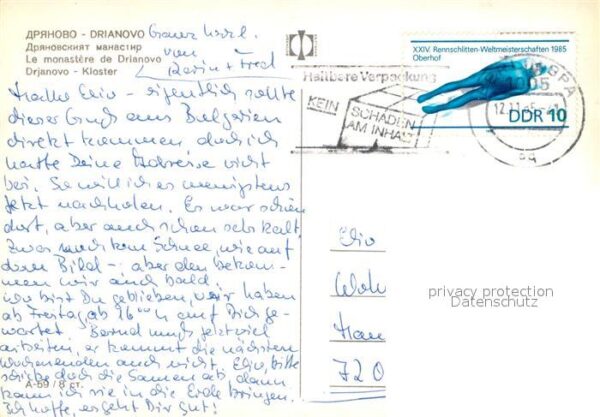 ДРЯНОВО - DRIANOVO
Дряновският манастир
Le monastère de Drianovo
Drjanovo - Kloster
Ganz herzl.
von
Karin + Fred
Hallo Elvio - eigentlich sollte
dieser Gruß aus Bulgarien
direkt kommen, doch ich
hatte Deine Adresse nicht
bei. So will ich es wenigstens
jetzt nachholen. Es war schön
dort, aber auch schon sehr kalt.
Zwar noch kein Schnee, wie auf
dem Bild - aber den bekom-
men wir auch bald.
Wo bist Du geblieben, wir haben
ab Freitag ab 16 00 h auf Dich ge-
wartet. Bernd muß jetzt viel
arbeiten, er kommt die nächsten
Wochenenden auch nicht. bitte
schicke doch die Samen ab, dann
kann ich sie in die Erde bringen.
Ich hoffe, es geht Dir gut!
А-59 / 8 ст.
Haltbare Verpackung
KEIN SCHADEN
AM INHALT
XXIV. Rennschlitten-Weltmeisterschaften 1985
Oberhof
DDR 10
Woh
720
privacy protection
Datenschutz